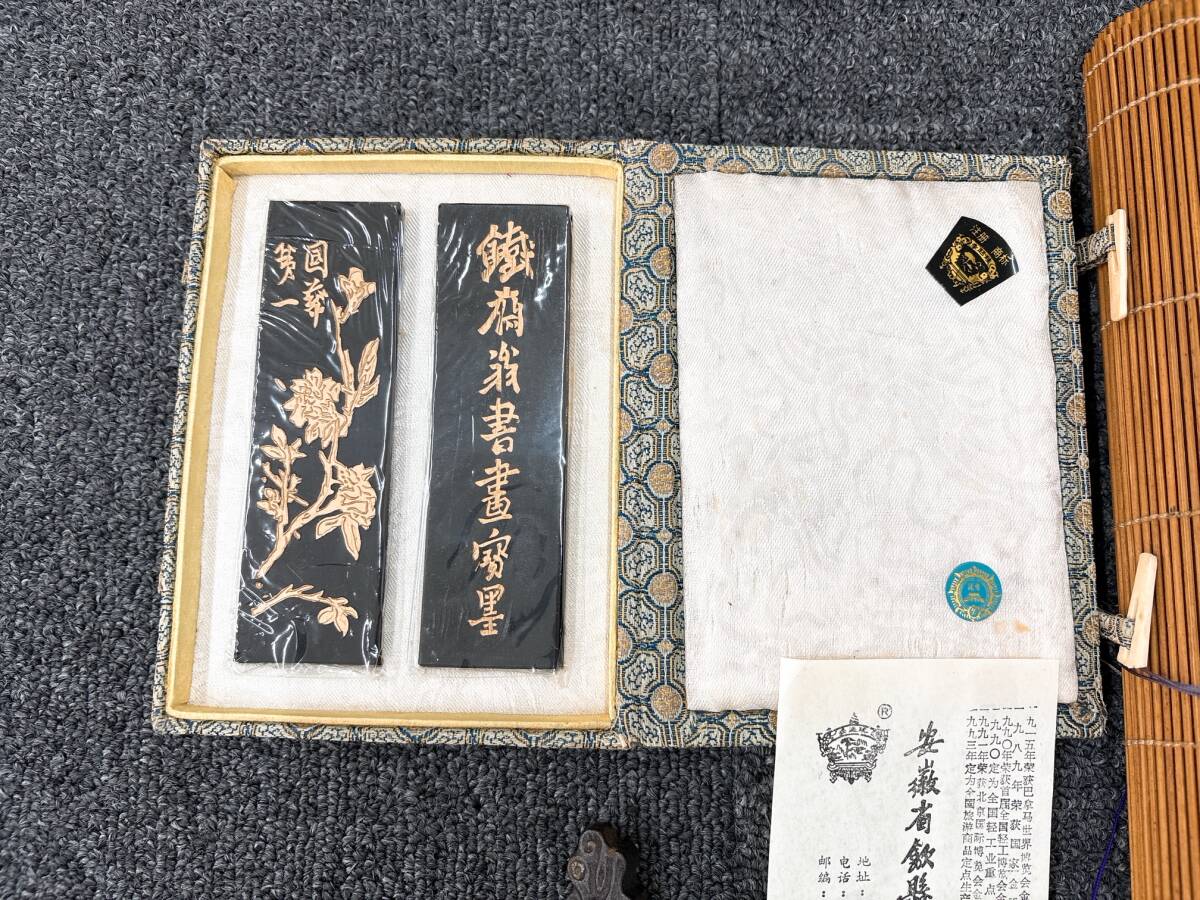 國華
第一
鐵齋翁書畫寶墨
注册 商标
九一五年荣获巴拿马世界博览会金
一九八九年荣获国家金
九九〇年荣获首届全国轻工博览会金
九九〇定为全国轻工业重点
九九一年荣获北京国际博览会金
九九三年定为全国旅游商品定点生产
安徽省歙縣
®
地址：
电话：
邮编：